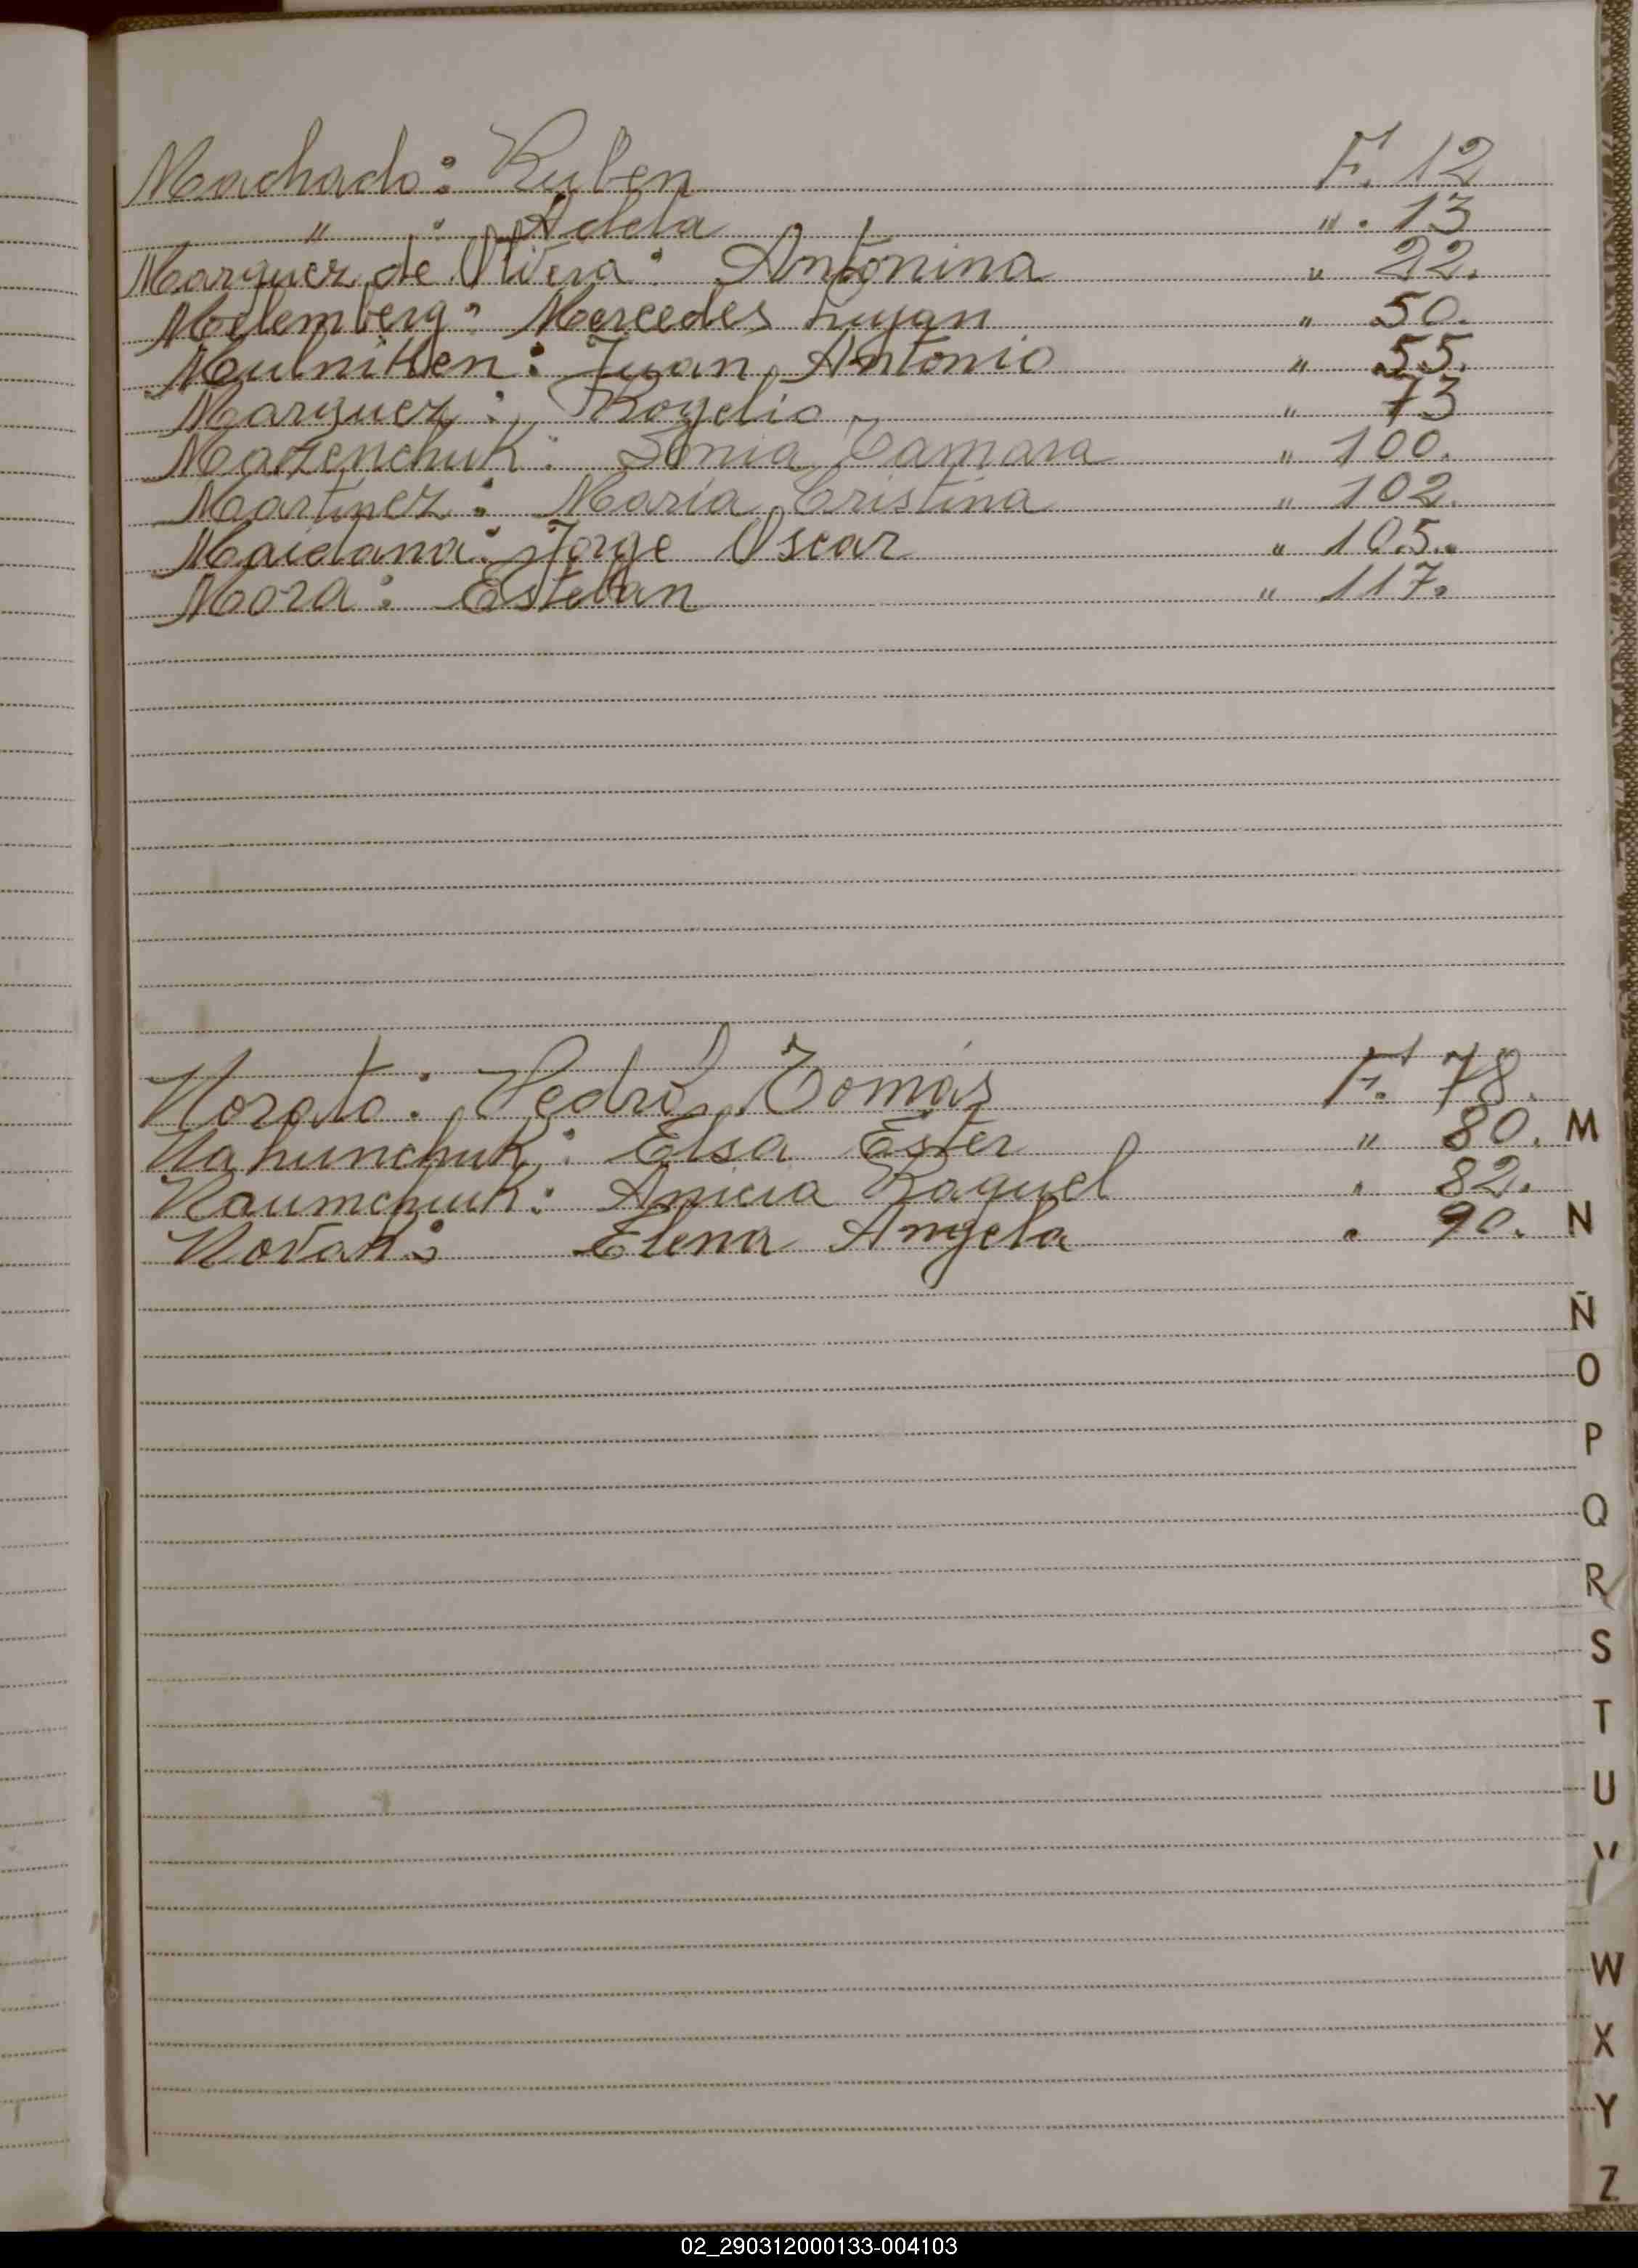 Machado: Ruben F. 12
" : Adela " . 13
Marquez de Olivera: Antonina " 22.
Melemberg: Mercedes Lujan " 50.
Mulniken: Juan Antonio " 55.
Marquez: Rogelio " 73
Mazenchuk: Sonia Tamara " 100.
Martinez: Maria Cristina " 102.
Maidana: Jorge Oscar " 105.
Mora: Esteban " 117.
Norato: Pedro Tomás F. 78.
Nahunchuk: Elsa Ester " 80.
Naumchuk: Anicia Raquel " 82.
Novak: Elena Angela " 90.
M
N
Ñ
O
P
Q
R
S
T
U
V
W
X
Y
Z
02_290312000133-004103